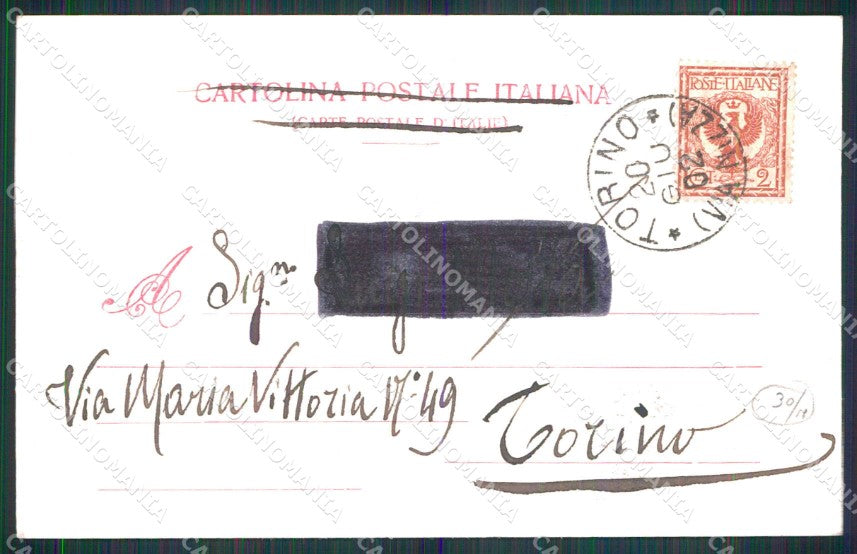 CARTOLINA POSTALE ITALIANA
(CARTE POSTALE D'ITALIE)
POSTE·ITALIANE
2
TORINO
20
GIU
02
(VIA NIZZA)
A Sig.na
Via Maria Vittoria N.° 49
Torino
CARTOLINOMANIA